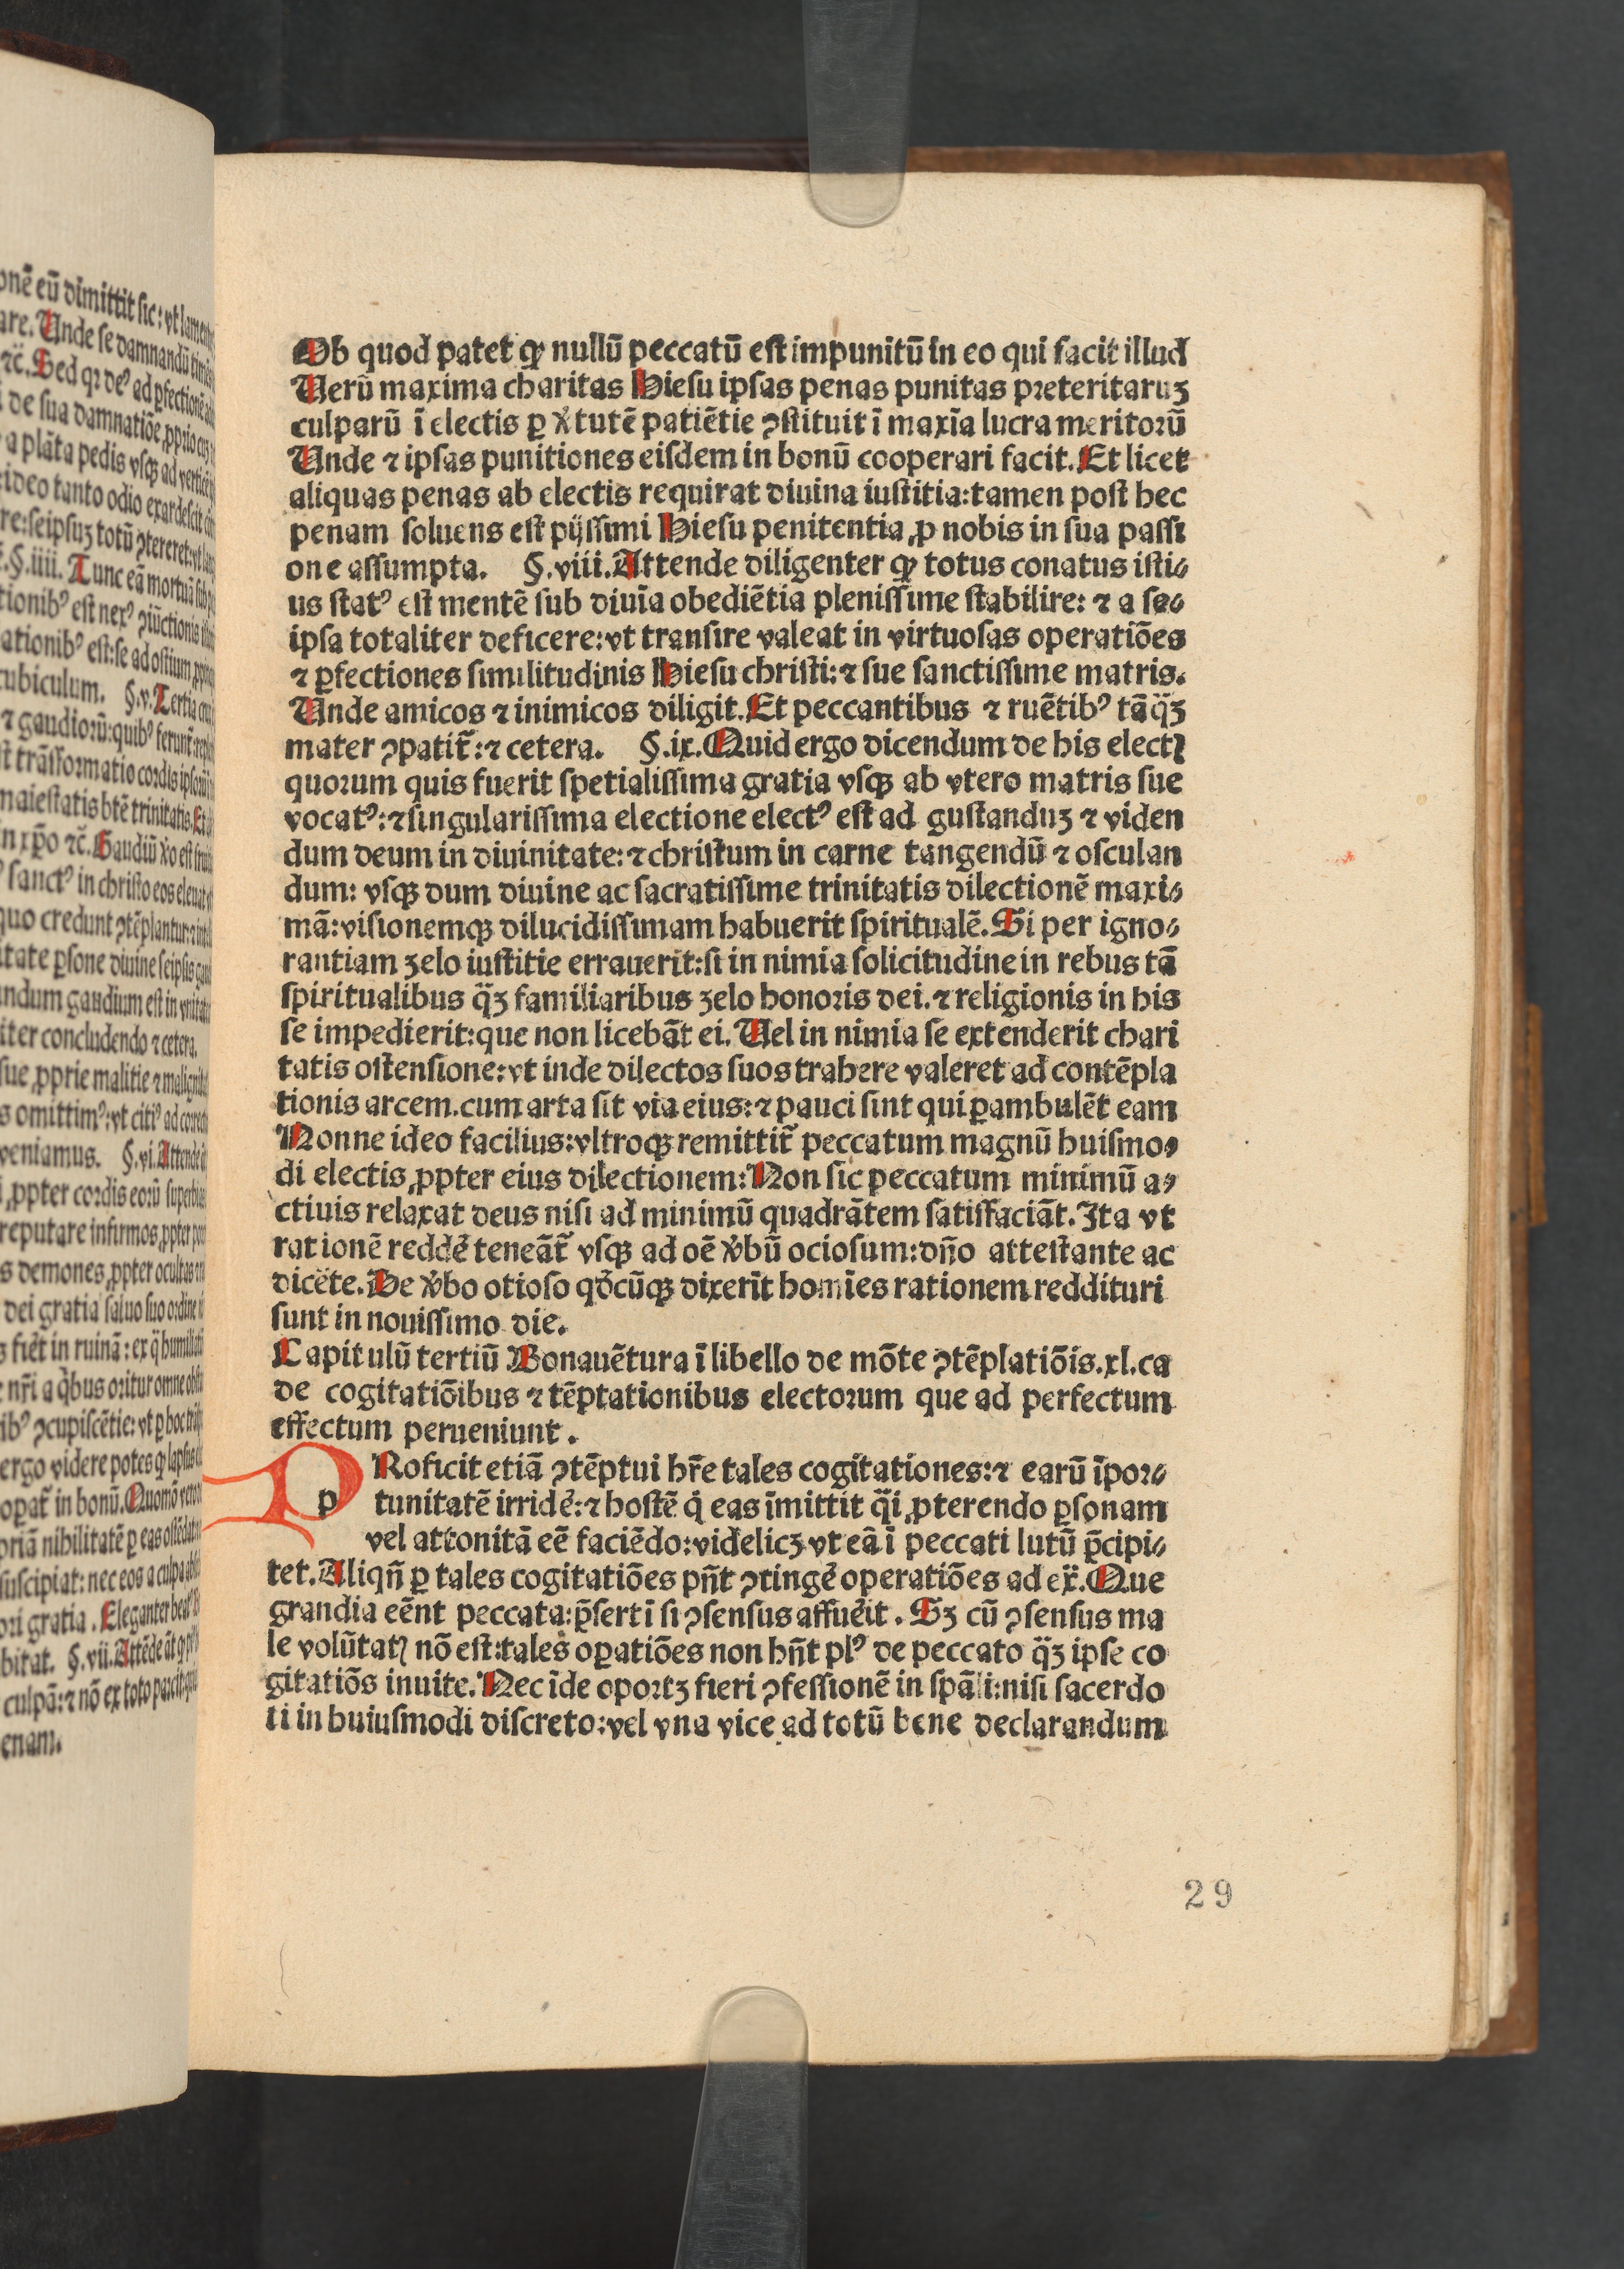 Ob quod patet ꝙ nullū peccatū est impunitū in eo qui facit illud
Uerū maxima charitas Hiesu ipsas penas punitas preteritaruꝫ
culparū ī electis ꝑ v̾tutē patiētie ꝯstituit ī maxīa lucra meritorū
Unde ⁊ ipsas punitiones eisdem in bonū cooperari facit. Et licet
aliquas penas ab electis requirat diuina iustitia: tamen post hec
penam soluens est pijssimi Hiesu penitentia ꝓ nobis in sua passi
one assumpta. §.viii. Attende diligenter ꝙ totus conatus isti⸗
us statꝰ est mentē sub diuīa obediētia plenissime stabilire: ⁊ a se⸗
ipsa totaliter deficere: vt transire valeat in virtuosas operatiōes
⁊ ꝑfectiones similitudinis Hiesu christi: ⁊ sue sanctissime matris.
Unde amicos ⁊ inimicos diligit. Et peccantibus ⁊ ruētibꝰ tāq̄ꝫ
mater ꝯpatit̄: ⁊ cetera. §.ix. Quid ergo dicendum de his electꝭ
quorum quis fuerit spetialissima gratia vsqꝫ ab vtero matris sue
vocatꝰ: ⁊ singularissima electione electꝰ est ad gustanduꝫ ⁊ viden
dum deum in diuinitate: ⁊ christum in carne tangendū ⁊ osculan
dum: vsqꝫ dum diuine ac sacratissime trinitatis dilectionē maxi⸗
mā: visionemqꝫ dilucidissimam habuerit spiritualē. Si per igno⸗
rantiam zelo iustitie errauerit: si in nimia solicitudine in rebus tā
spiritualibus q̄ꝫ familiaribus zelo honoris dei. ⁊ religionis in his
se impedierit: que non licebāt ei. Uel in nimia se extenderit chari
tatis ostensione: vt inde dilectos suos trahere valeret ad contēpla
tionis arcem. cum arta sit via eius: ⁊ pauci sint qui ꝑambulēt eam
Nonne ideo facilius: vltroqꝫ remittit̄ peccatum magnū huismo⸗
di electis ꝓpter eius dilectionem: Non sic peccatum minimū a⸗
ctiuis relaxat deus nisi ad minimū quadrātem satisfaciāt. Ita vt
rationē redde̾ teneāt̄ vsqꝫ ad oē v̾bū ociosum: dn̄o attestante ac
dicēte. De v̾bo otioso qd̾cūqꝫ dixerīt homīes rationem reddituri
sunt in nouissimo die.
Capitulū tertiū Bonauētura ī libello de mōte ꝯtēplatiōis. xl. ca
de cogitatiōibus ⁊ tēptationibus electorum que ad perfectum
effectum perueniunt.
PRoficit etiā ꝯtēptui hr̄e tales cogitationes: ⁊ earū īpor⸗
tunitatē irride̾: ⁊ hostē qͥ eas īmittit q̄i ꝓterendo ꝑsonam
vel attonitā eē faciēdo: videlicꝫ vt eā ī peccati lutū p̄cipi⸗
tet. Aliqn̄ ꝑ tales cogitatiōes pn̄t ꝯtinge̾ operatiōes ad ex̄. Que
grandia eēnt peccata: p̄sertī si ꝯsensus affue̾it. Sꝫ cū ꝯsensus ma
le volūtatꝭ nō est: tales oꝑatiōes non hn̄t plꝰ de peccato q̄ꝫ ipse co
gitatiōs inuite. Nec īde oportꝫ fieri ꝯfessionē in spāli: nisi sacerdo
ti in huiusmodi discreto: vel vna vice ad totū bene declarandum
29